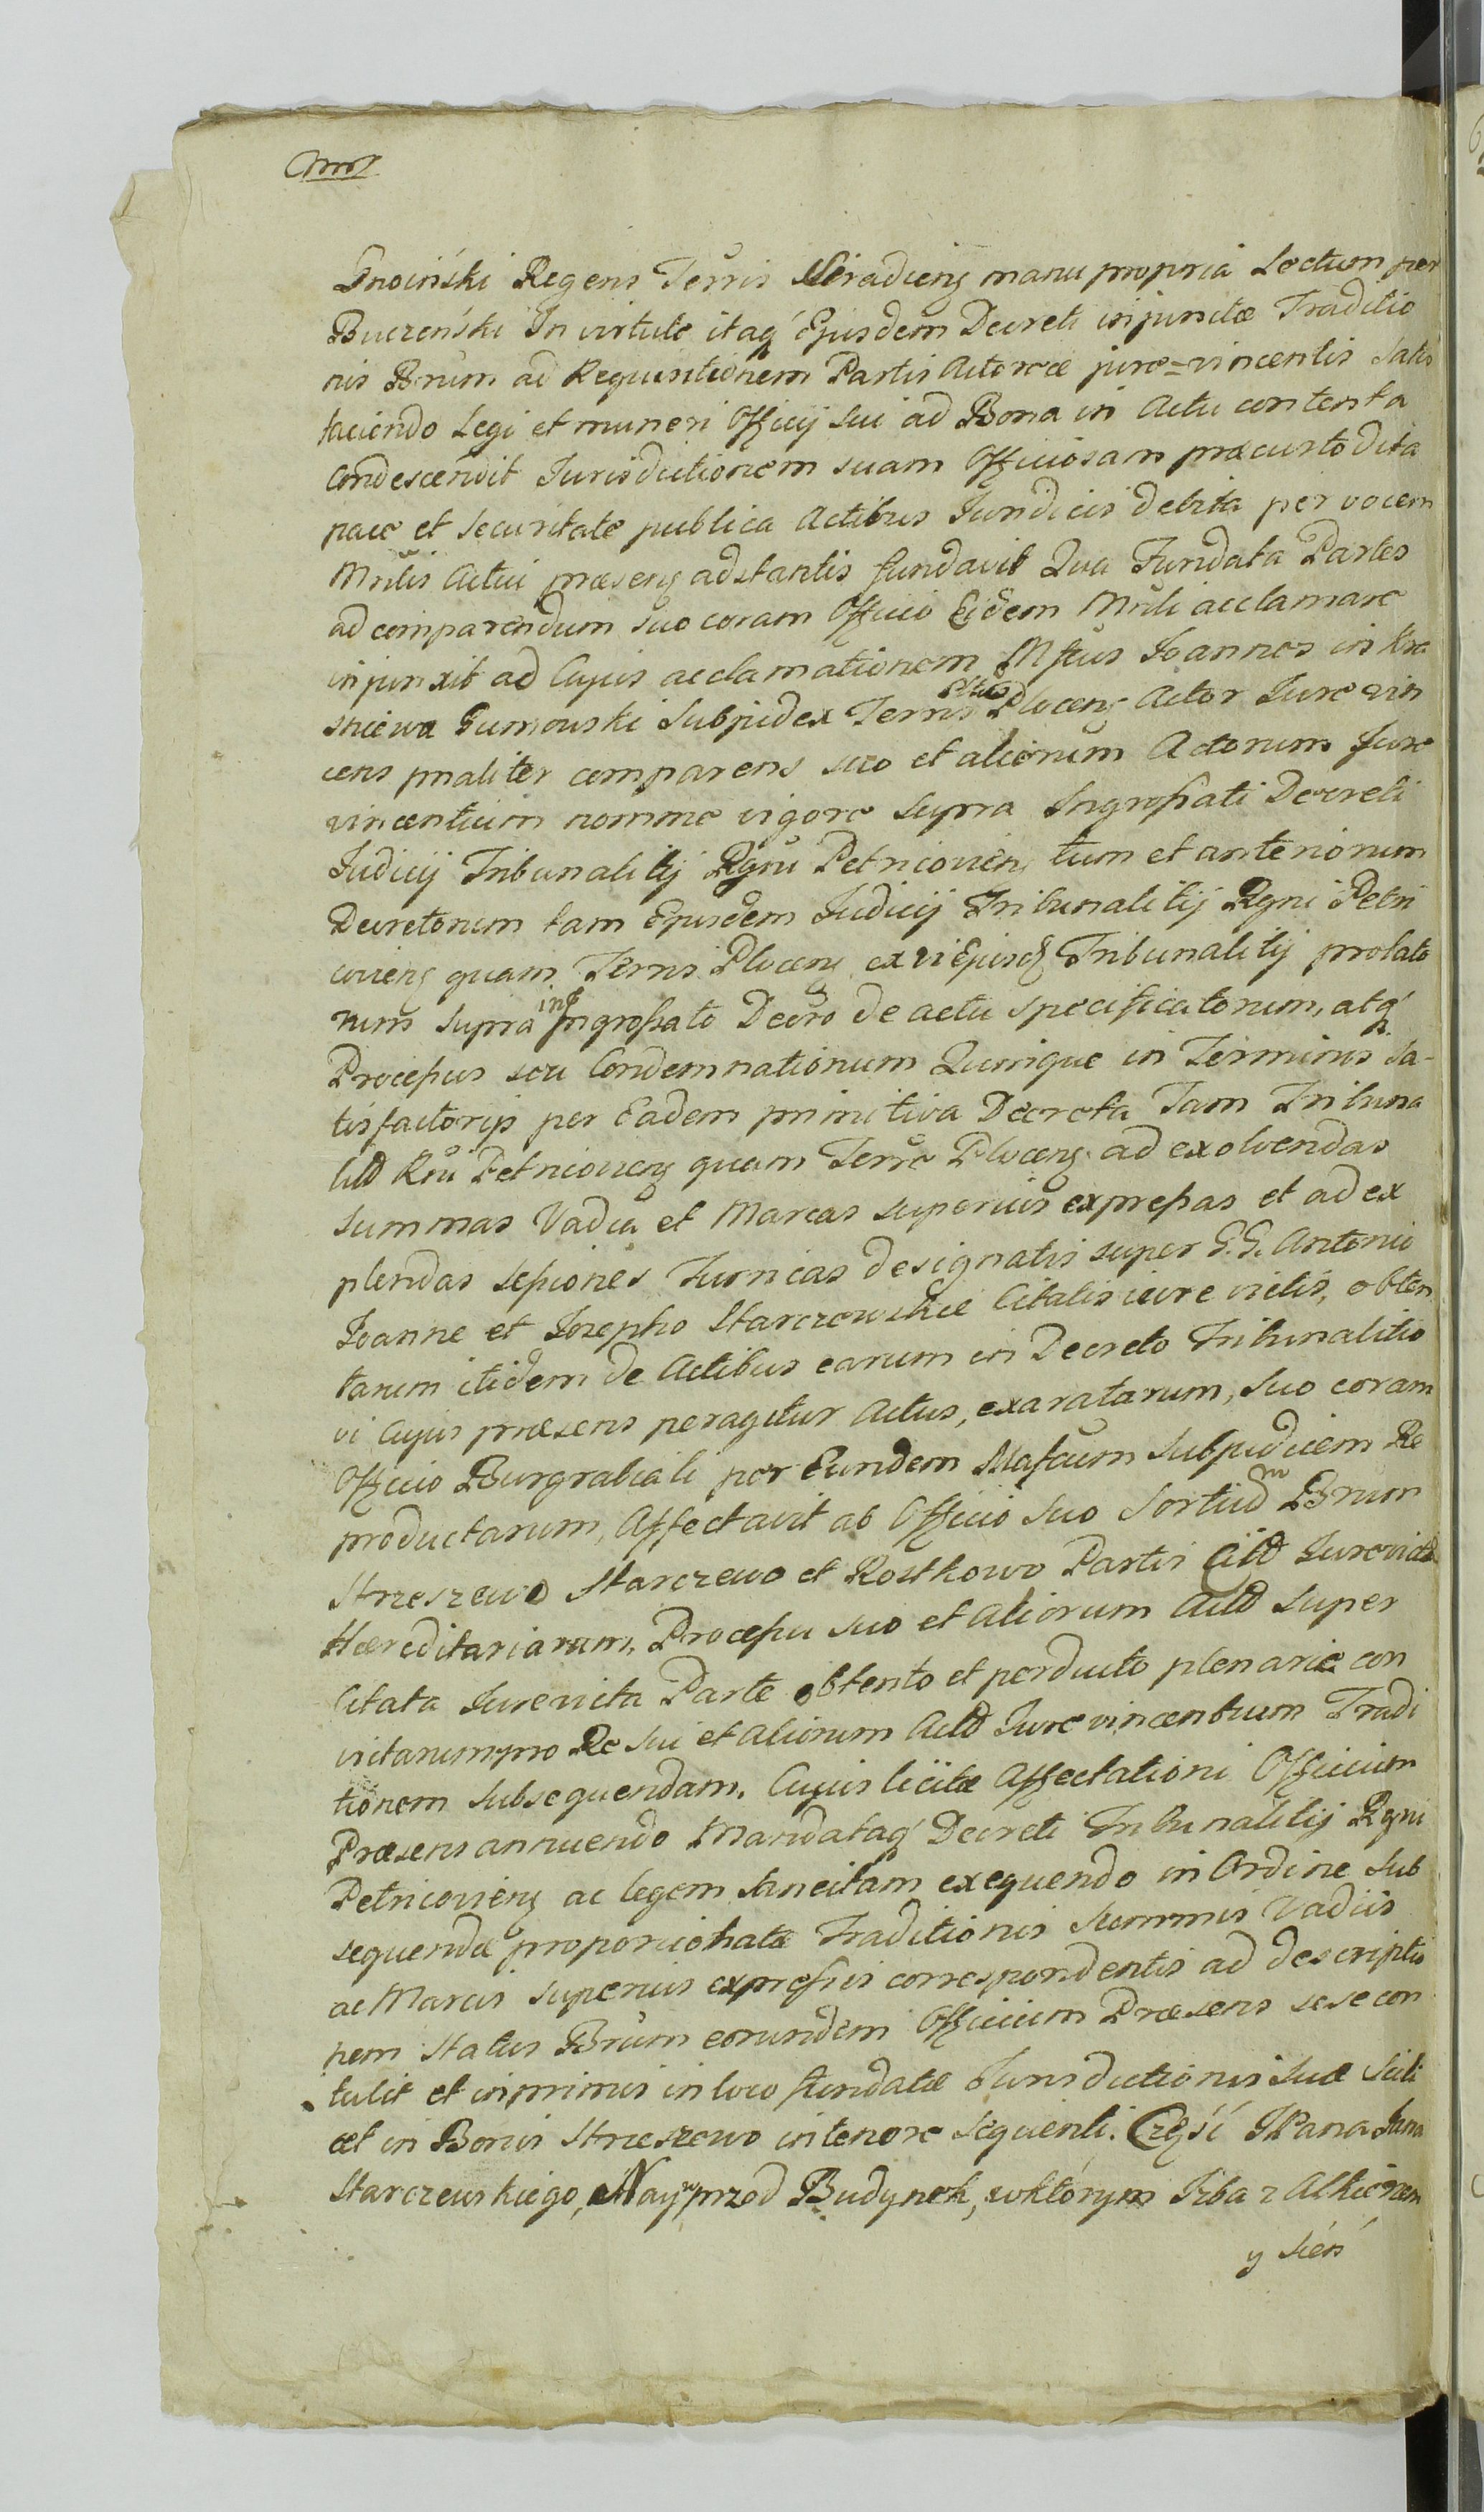 Gnoiński Regens Terris Siradiens manu propria Lectum per
Buczeński In virtute itaq Ejusdem Decreti injunctæ Traditio
nis Brum̃ ad Requisitionem Partis Actoreæ jure=vincentis Satis
faciendo Legi et muneri Officij Sui ad Bona in Actu contenta
condescendit Jurisdictionem suam Officiosam præcustodita
pace et securitate publica Actibus Juridicis debita per vocem
Mnlis Actui præsens adstantis fundavit Qua Fundata Partes
ad comparendum suo coram Officio Eidem Mnli acclamare
injunxit ad Cujus acclamationem Mfcus Joannes in Kra
sniewa Gumowski Subjudex Terris Plocens Actor Jure vin
cens pnaliter comparens suo et aliorum Actorum Jure
vincentium nomine vigore supra Ingrossati Decreti
Judicij Tribunalitij Rgni Petricovien, tum et anteriorum
Decretorum tam Ejusdem Judicij Tribunalitij Rgni Petri
coviens quam Terris Plocens ex vi Ejusd Tribunalitij prolato
rum supra ingrossato Decro de actu specificatorum, atq
Processus seu Condemnationum Quinque in Terminis Sa-
tisfactorijs per Eadem primitiva Decreta Tam Tribuna
litd Rni Petricoviens quam Terre Plocens ad exolvendas
Summas Vadia et Marcas superius expressas et ad ex
plendas sessiones Turricas designatis super G.G. Antonio
Joanne et Josepho Starczewskie Citatis iure victis, obten
tarum itidem de Actibus earum in Decreto Tribunalitio
vi Cujus præsens peragitur Actus, exaratarum, Suo coram
Officio Burgrabiali per Eundem Mafcum Subjudicem Re
productarum, Affectavit ab Officio Suo Sortium Brum
Strzeszewo Starczewo et Rostkowo Partis Citd Jurevictd
Hæreditariarum, Processu suo et Aliorum Actd super
Citata Jurevicta Parte obtento et perducto plenarie con
victarum pro Re Sui et Aliorum Actd Jure vincentium Tradi
tionem subsequendam. Cujus licitæ Affectationi Officium
Præsens annuendo Mandatáq Decreti Tribunalitij Rgni
Petricoviens ac legem sancitam exequendo in Ordine Sub
sequendæ proporcionatæ Traditionis Summis Vadiis
ac Marcis superius expressis correspondentis ad descriptio
nem Status Brum eorundem Officium Præsens sese con
tulit et inprimis in loco fundatæ Jurisdictionis suæ Scili
cet in Bonis Strzeszewo in tenore sequenti. Częśi JPana Jana
Starczewskiego, Nayprzod Budynek, wktórym Izba z Alkierzem
y Sień